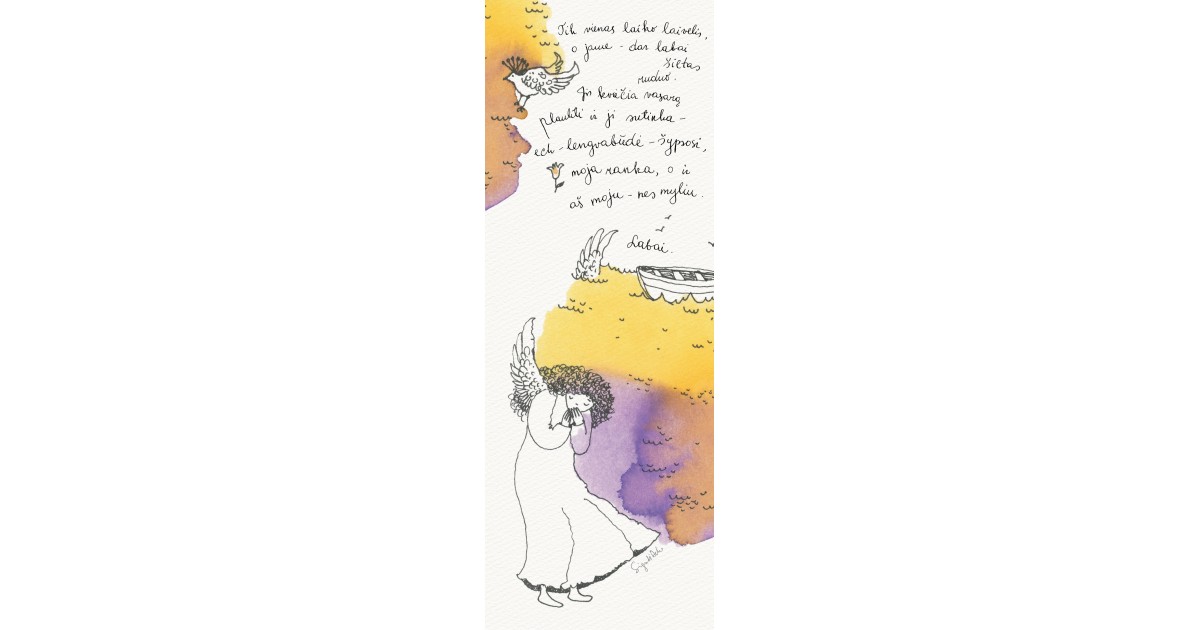 Tik vienas laiko laivelis,
o jame - dar labai
šiltas
ruduo.
Jis kviečia vasarą
plaukti ir ji sutinka -
ech - lengvabūdė - šypsosi,
moja ranka, o ir
aš moju - nes myliu.
Labai.